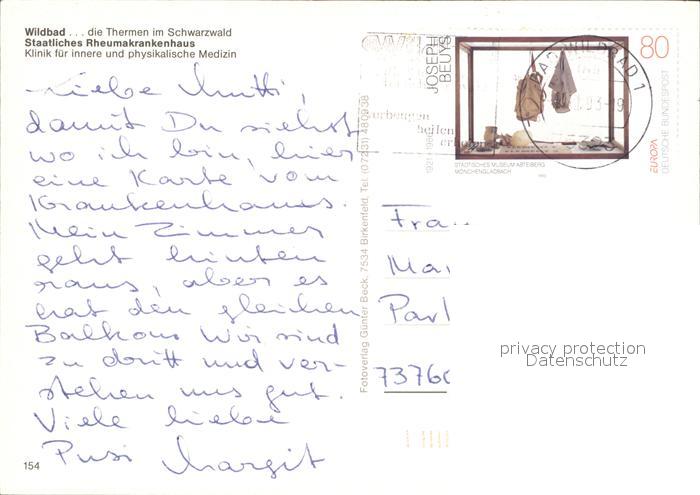 Wildbad . . . die Thermen im Schwarzwald
Staatliches Rheumakrankenhaus
Klinik für innere und physikalische Medizin
Liebe Mutti,
damit Du siehst
wo ich bin, hier
eine Karte vom
Krankenhaus.
Mein Zimmer
geht hinten
raus, aber es
hat den gleichen
Balkon. Wir sind
zu dritt und ver-
stehen uns gut.
Viele liebe
Pusi Margit
154
Fotoverlag Günter Beck, 7534 Birkenfeld, Tel. (07231) 480938
JOSEPH
BEUYS
1921-1986
80
DEUTSCHE BUNDESPOST
EUROPA
STÄDTISCHES MUSEUM ABTEIBERG
MÖNCHENGLADBACH
BAD WILDBAD 1
heilen
Fra
Mai
Park
7376
privacy protection
Datenschutz